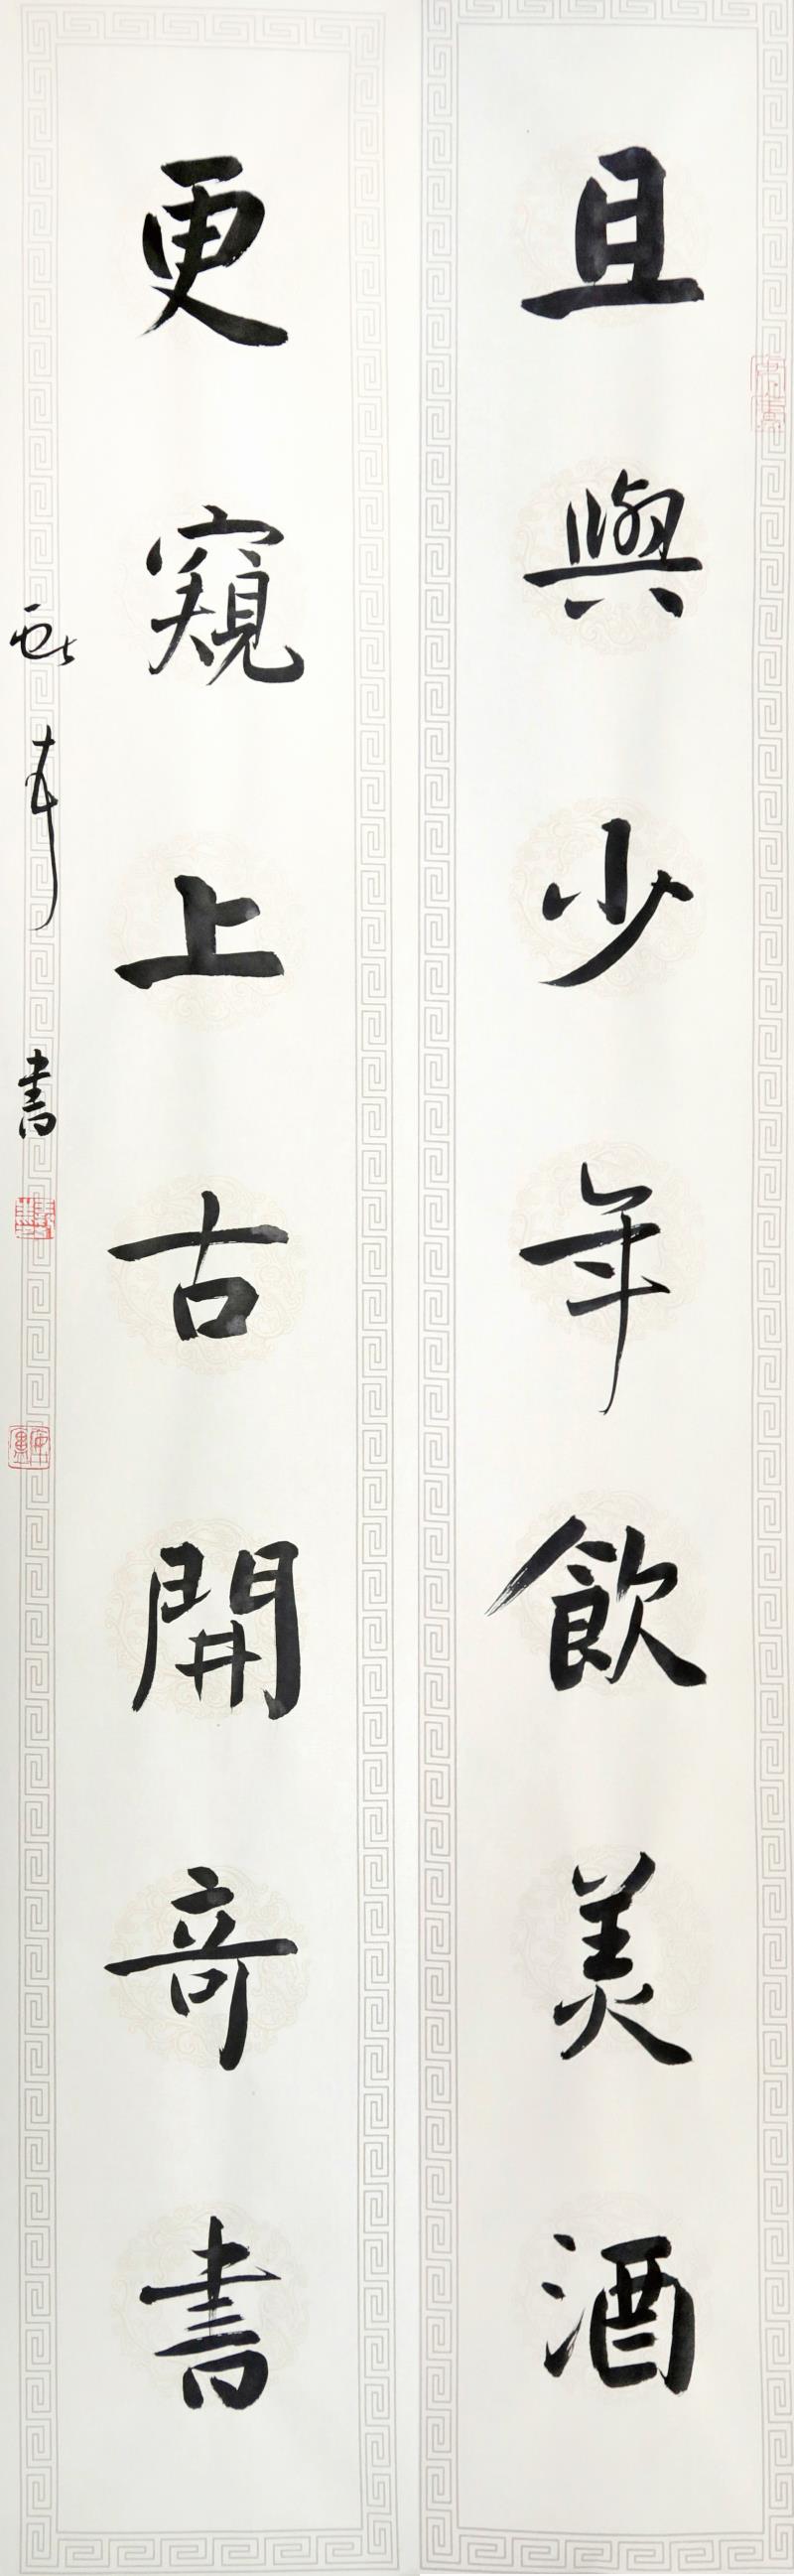 且與少年飲美酒
更窺上古開奇書
書